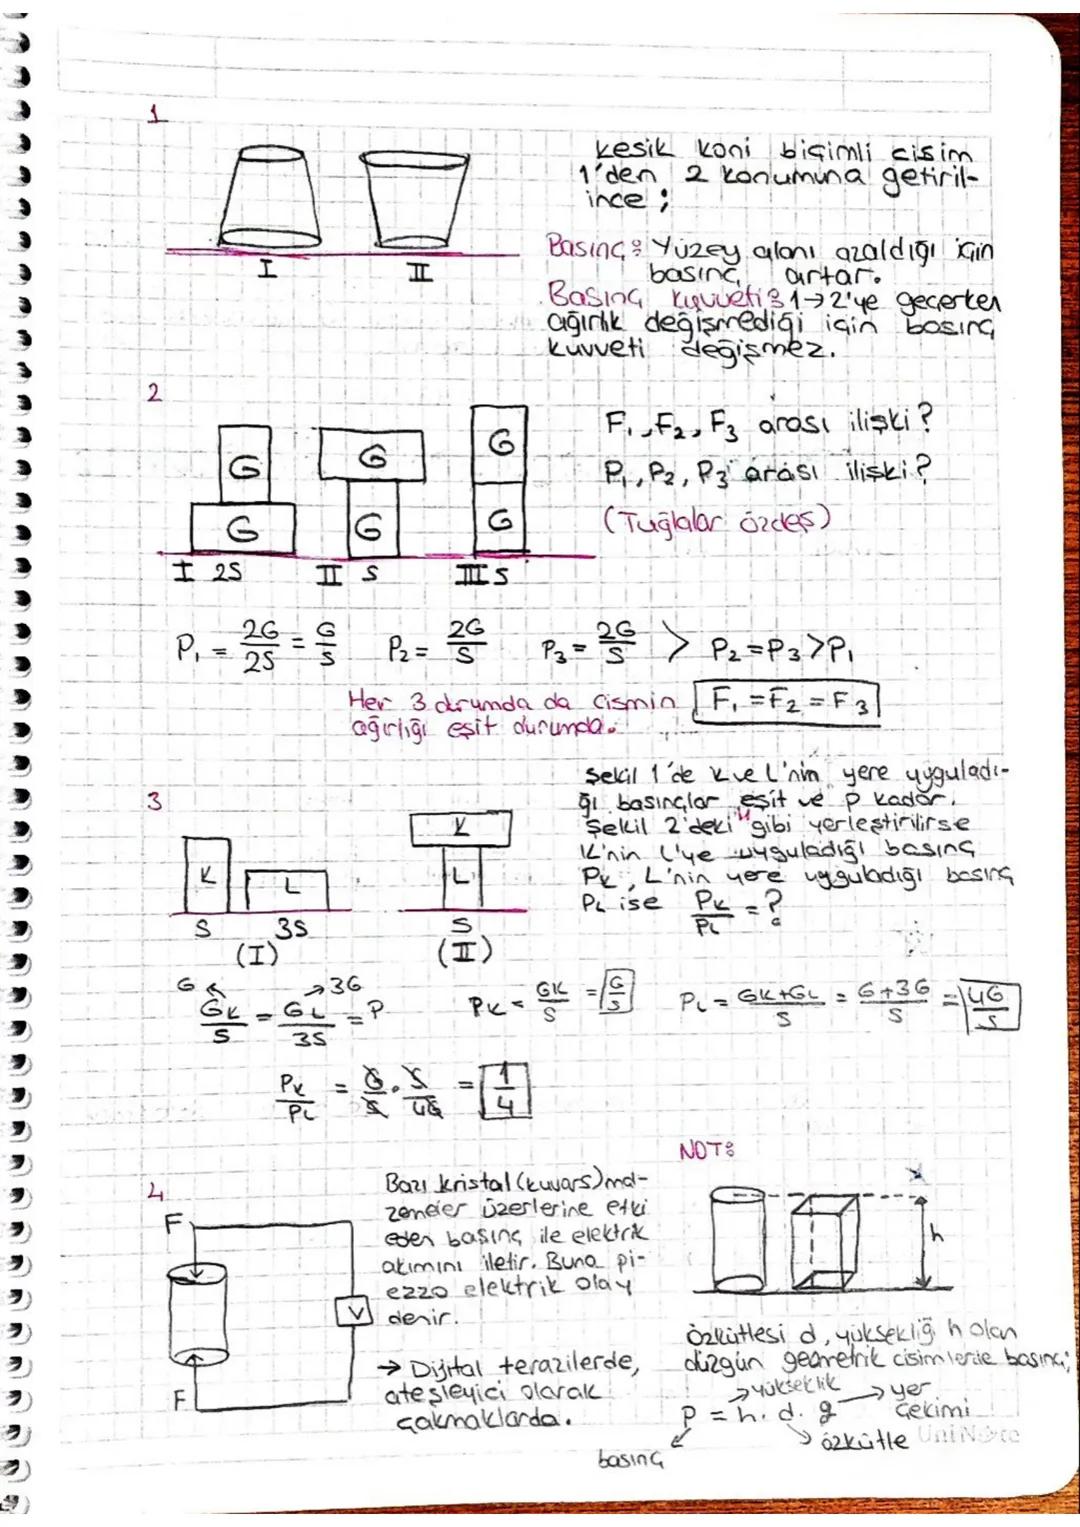 1
kesik koni biçimli cisim
1'den 2 konumuna getiril-
ince ;
I II
Basınç: Yüzey alanı azaldığı için
basınç artar.
Basınç kuvveti: 1→2'ye geçerken
ağırlık değişmediği için basınç
kuvveti değişmez.
2
F₁, F₂, F₃ arası ilişki?
P₁, P₂, P₃ arası ilişki?
(Tuğlalar özdeş)
G G G
G G G
I 2S II S III S
P₁ = 2G/2S = G/S P₂ = 2G/S P₃ = 2G/S > P₂=P₃>P₁
Her 3 durumda da cismin F₁ = F₂ = F₃
ağırlığı eşit durumda.
3
Şekil 1'de K ve L'nin yere uyguladı-
ğı basınçlar eşit ve p kadar.
Şekil 2'deki gibi yerleştirilirse
K'nin L'ye uyguladığı basınç
PK, L'nin yere uyguladığı basınç
PL ise PK/PL = ?
K L K L
S 3S S
(I) (II)
G 3G
GK/S = GL/3S = P PK = GK/S = G/S PL = GK+GL/S = G+3G/S = 4G/S
PK/PL = G/S . S/4G = 1/4
4
Bazı kristal (kuvars) mal-
zemeler üzerlerine etki
eden basınç ile elektrik
akımını iletir. Buna pi-
ezzo elektrik olay
denir.
→ Dijital terazilerde,
ateşleyici olarak
çakmaklarda.
F
V
F
NOT:
h
özkütlesi d, yüksekliği h olan
düzgün geometrik cisimlerde basınç;
→yükseklik → yer
P = h. d. g çekimi
→ özkütle UniNote
basınç